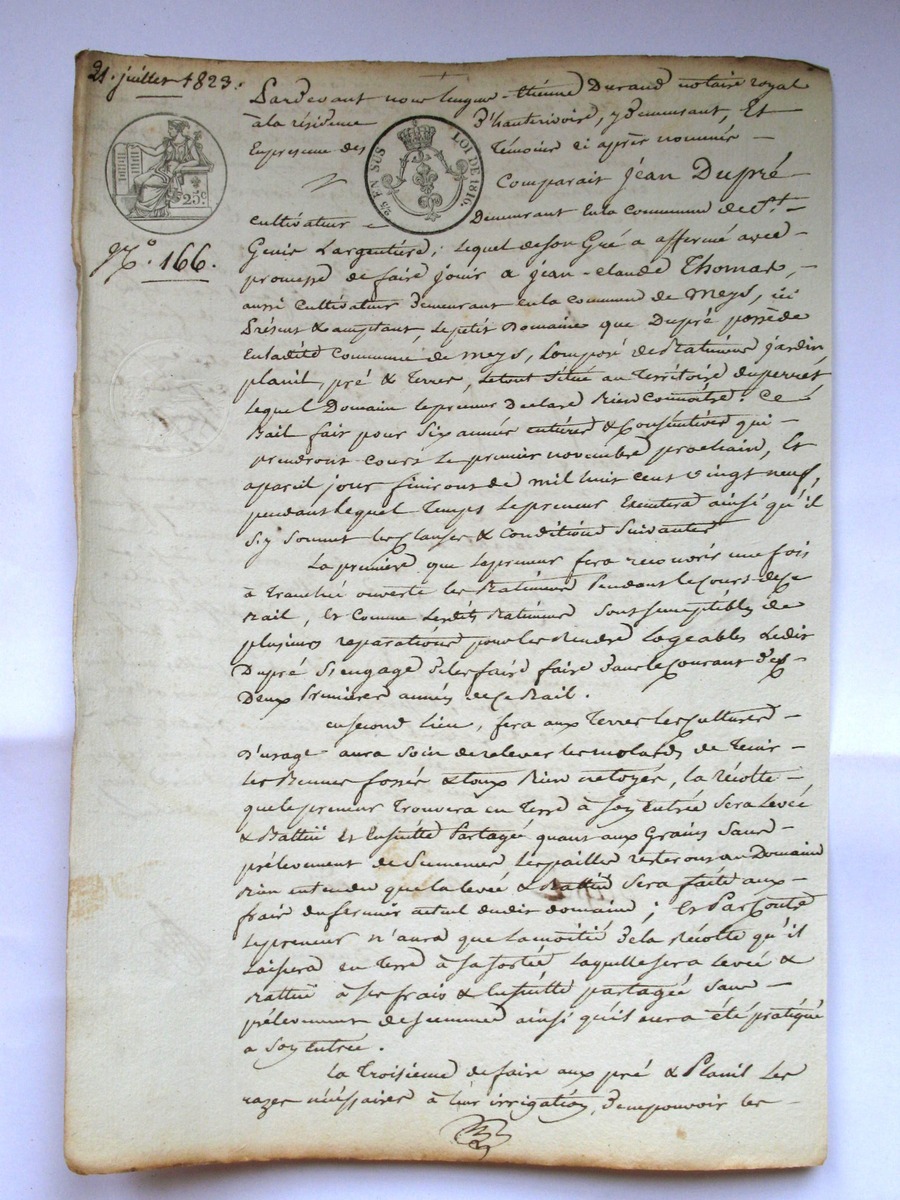 21. juillet 1823.
Pardevant nous Hugue-Etienne Durand notaire royal
à la résidence d'hauterivoire, y demeurant, Et
En presence des Témoins ci après nommés —
Comparait jean Dupré
25 EN SUS LOI DE 1816.
25c
N.° 166.
Cultivateur Demeurant En la commune de St —
Genis Largentière; lequel de son Gré a affermé avec —
promesse de faire jouir a jean-claude Thomas, —
aussi Cultivateur demeurant en la commune de meys, ici
Présent & acceptant, le petit Domaine que Dupré possède
En ladite Commune de meys, Composé de Batimens jardin,
planil, pré & Terres, le tout Situé au Territoire du perret
lequel Domaine le preneur Declare Bien Connoitre: Ce
Bail fait pour Six années entières & Consécutives qui —
prendront cours le premier novembre prochain, Et
a pareil jour finiront de mil huit cent vingt neuf,
pendant lequel Temps le preneur Executera ainsi qu'il
s'y Soumet les Clauses & Conditions Suivantes
La première que le preneur fera recouvrir une fois
à Tranchée ouverte les Batimens Pendant le Cours de Ce
Bail, Et Comme lesdits Batimens Sont Susceptibles de
plusieurs reparations pour les Rendre Logeables Ledit
Dupré S'engage de les faire faire dans le Courant des
Deux Premieres années de Ce Bail.
en second Lieu, fera aux Terres les Cultures —
D'usage aura Soin de relever les molards de Tenir —
Les Bennes fosses & Bien netoyés, la récolte —
que le preneur Trouvera en Terre à Son Entrée Sera Levée
& Battüe Et Ensuitte Partagée quant aux Grains Sans —
prélevement de Semences Les pailles resterons au Domaine
Bien entendu que la levée & Battüe Sera faite aux —
frais du fermier actuel dudit domaine; Et Par Contre
Le preneur n'aura que La moitié de la Récolte qu'il
Laissera en Terre à Sa Sortie Laquelle sera Levée &
Battüe à Ses frais & Ensuitte partagée Sans —
prélevement de Semence ainsi qu'il aura été pratiqué
a Son Entrée.
La Troisième de faire aux pré & Planil Les
razes nécessaires à leur irrigation, de ne pouvoir les —